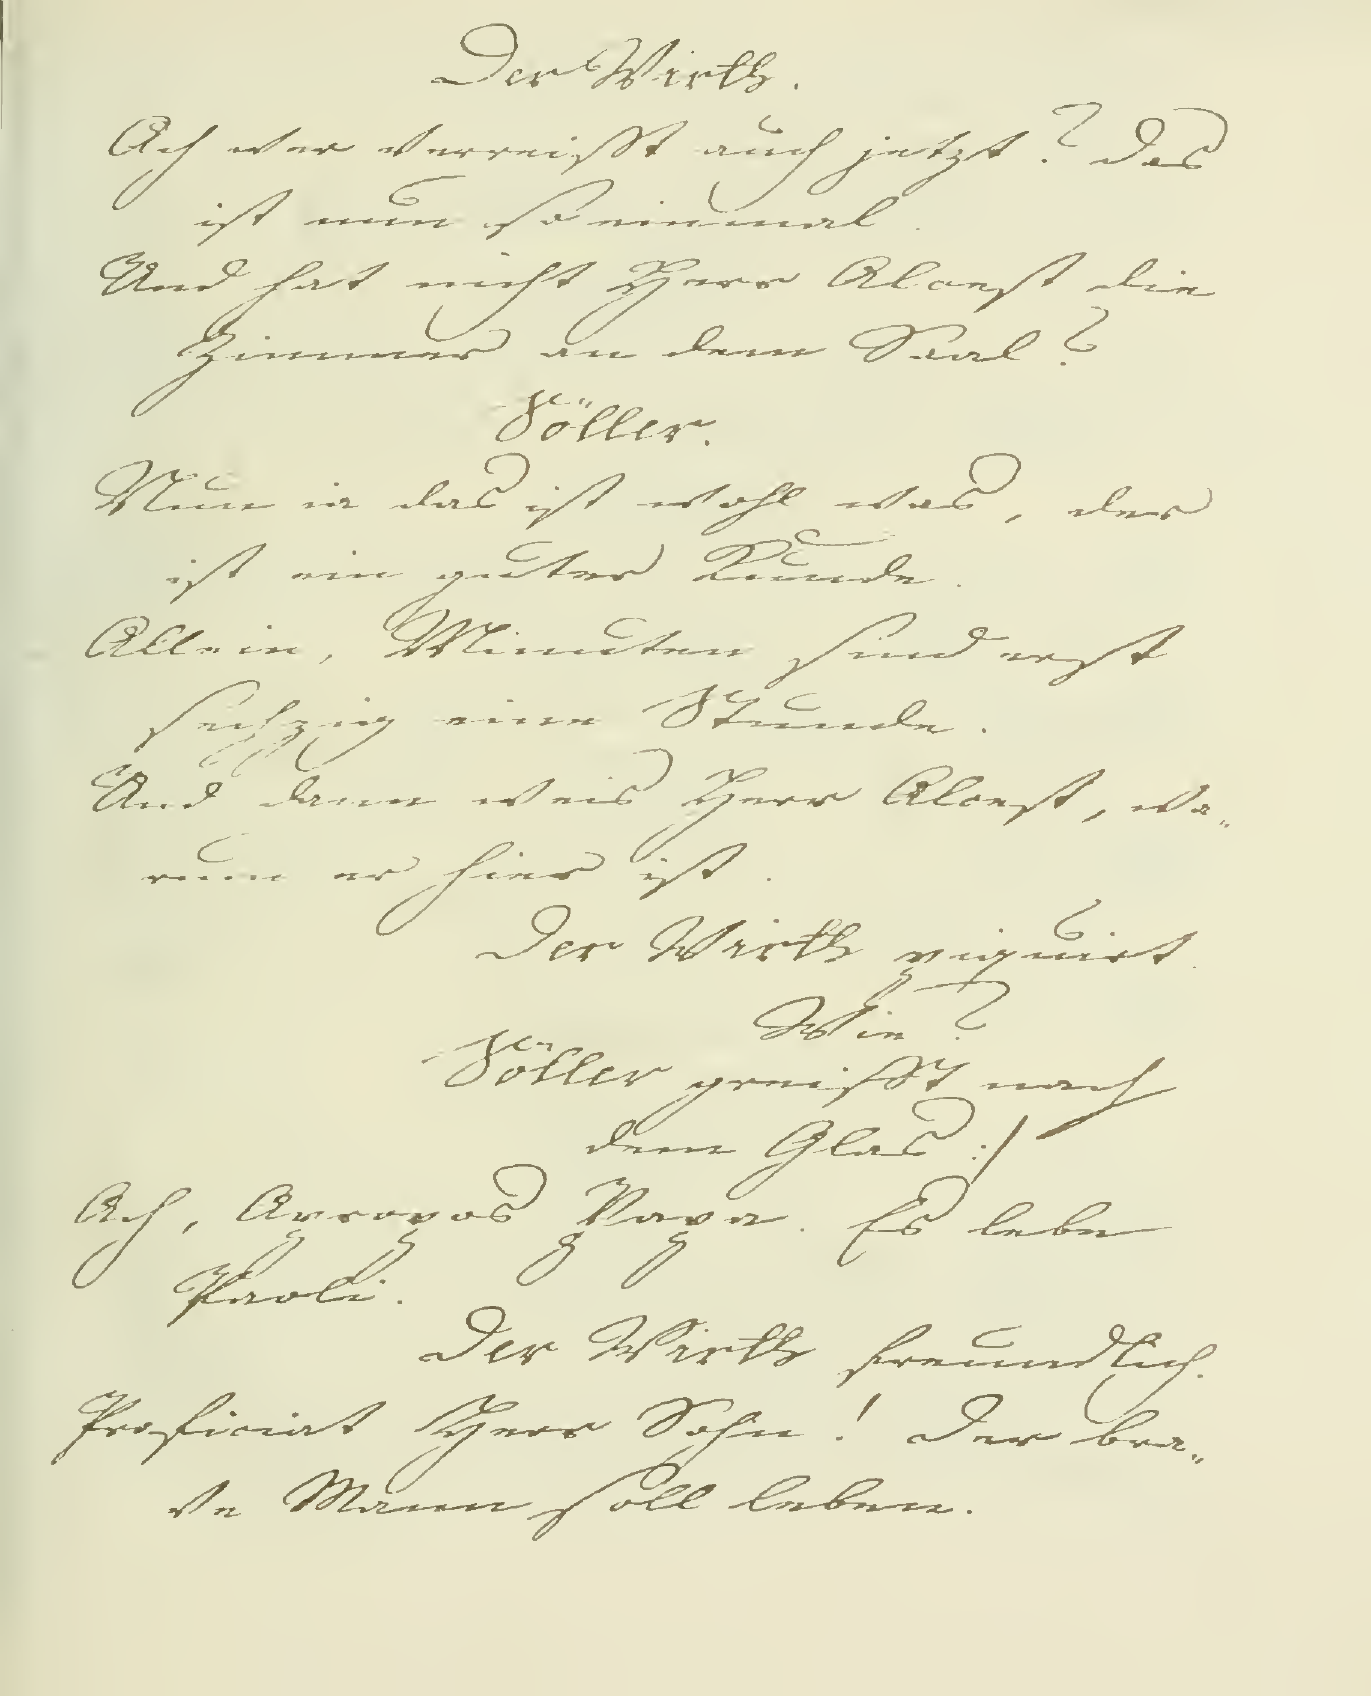 Der Wirth.
Ach wer verreißt auch jetzt? Das
ist nun so einmal.
Und hat nicht Herr Alcest die
Zimmer an dem Saal?
Söller.
Nun ia das ist wohl was, der
ist ein guter Kunde.
Allein, Minuten sind erst
sechzig eine Stunde.
Und dann weis Herr Alcest, wa„
rum er hier ist.
Der Wirth piquirt.
Wie?
Söller greifft nach
dem Glas :/
Ach, Apropos Papa. Es lebe
Paoli.
Der Wirth freundlich.
Proficiat Herr Sohn! Der bra„
ve Mann soll leben.